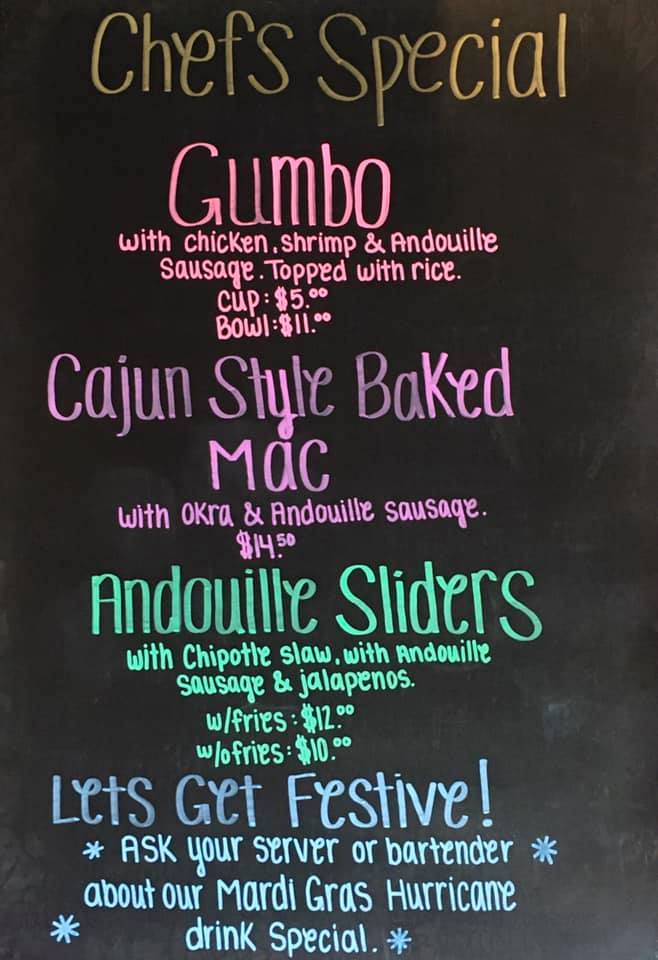 Chefs Special
Gumbo
with chicken, shrimp & Andouille
Sausage. Topped with rice.
Cup: $5.00
Bowl: $11.00
Cajun Style Baked
Mac
with Okra & Andouille sausage.
$14.50
Andouille Sliders
with Chipotle slaw, with Andouille
Sausage & jalapenos.
w/fries: $12.00
w/o fries: $10.00
Lets Get Festive!
* Ask your server or bartender *
about our Mardi Gras Hurricane
* drink Special. *